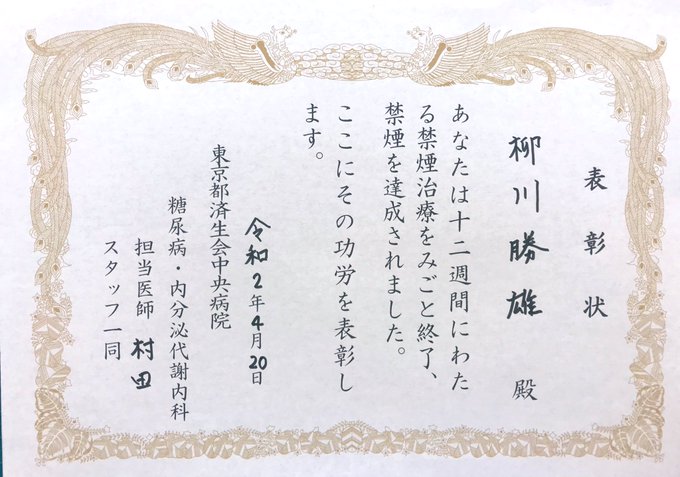 表彰状
柳川勝雄 殿
あなたは十二週間にわた
る禁煙治療をみごと終了、
禁煙を達成されました。
ここにその功労を表彰し
ます。
令和2年4月20日
東京都済生会中央病院
糖尿病・内分泌代謝内科
担当医師 村田
スタッフ一同